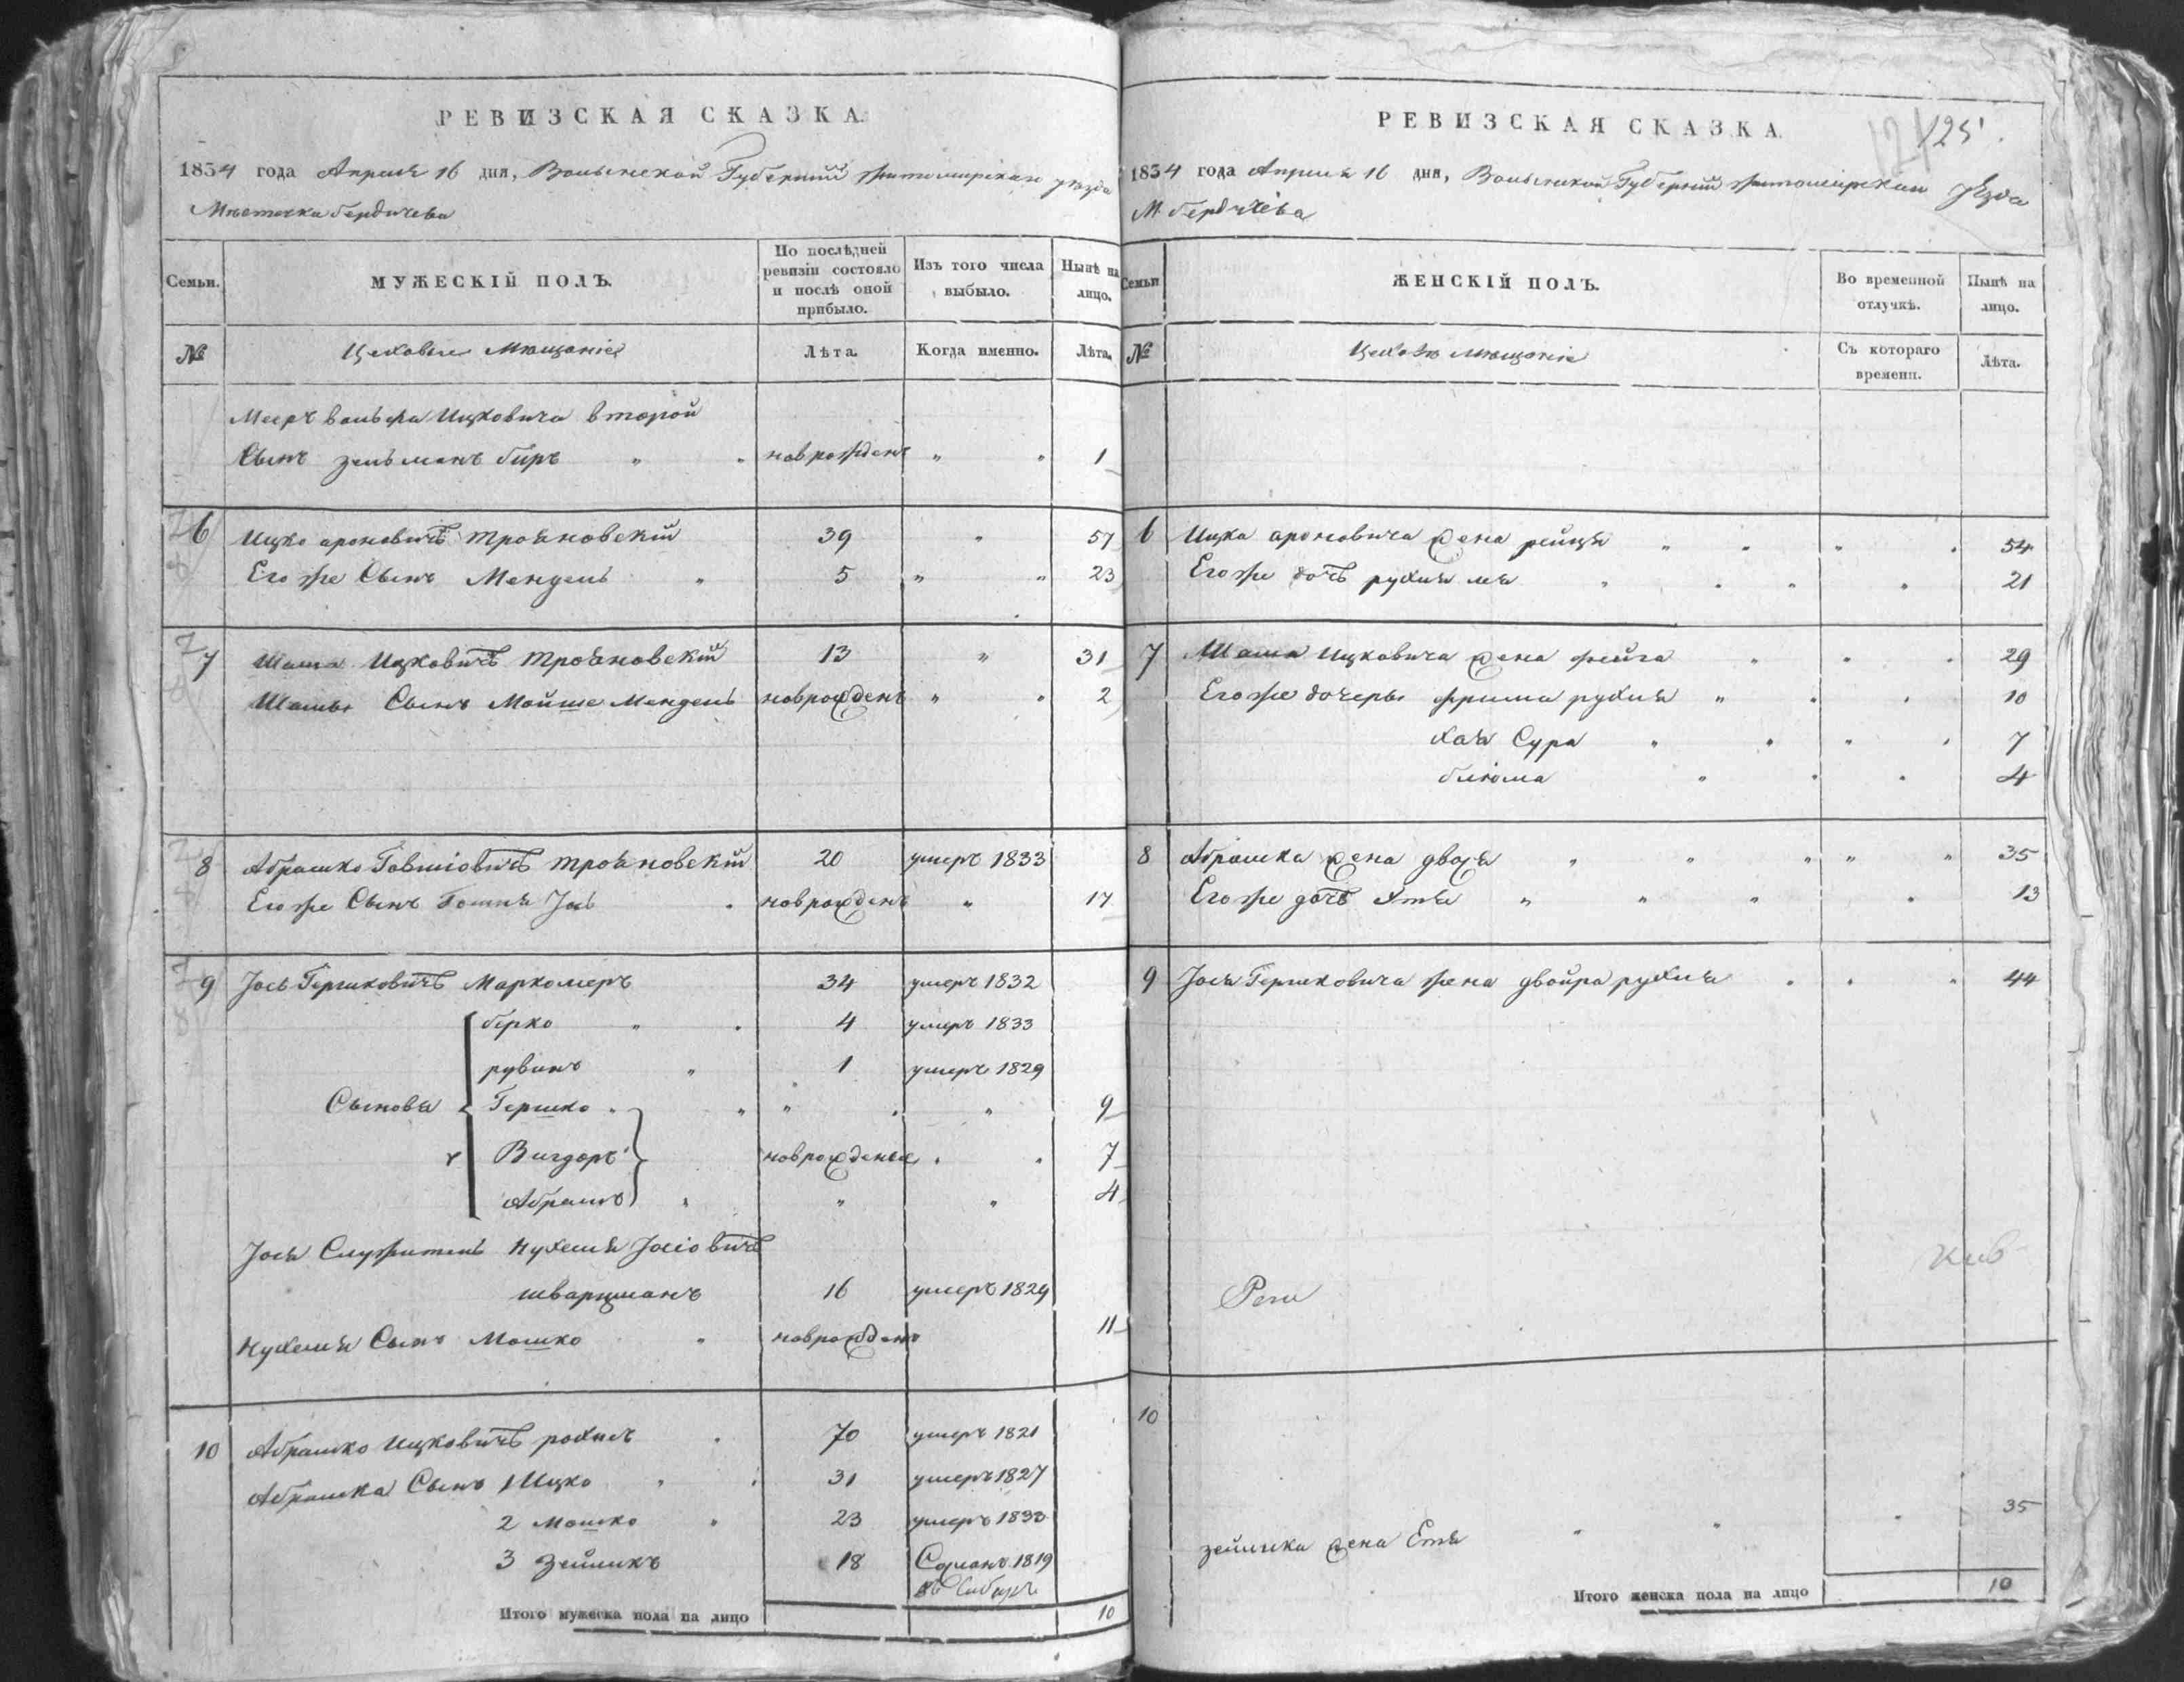 РЕВИЗСКАЯ СКАЗКА.
1834 года Апреля 16 дня, Волынской Губернии Житомирскаго уезда
Местечка бердичева
Семьи.
МУЖЕСКІЙ ПОЛЪ.
По послѣдней ревизіи состояло и послѣ оной прибыло.
Изъ того числа выбыло.
Нынѣ на лицо.
№
Цеховые Мещание
Лѣта.
Когда именно.
Лѣта.
Меер вольфа Ицковича второй
Сынъ зельманъ биръ " " новрожденъ " " 1
6 Ицко ароновичъ трояновскій 39 " 57
Его же Сынъ Мендель " 5 " " 23
7 Шама Ицковичъ трояновскій 13 " 31
Шамы Сынъ Мойше Мендель новрожденъ " " 2
8 Абрашко Говшіовичъ трояновскій 20 умеръ 1833
Его же Сынъ Іось новрожденъ " 17
9 Іось Гершковичъ Маркомеръ 34 умеръ 1832
берко " 4 умеръ 1833
рувинъ " 1 умеръ 1829
Сыновя Гершко " " " " 9
Вигдоръ новрожденые " " 7
Абрамъ " " " 4
Іося Служитель Нухемя Іосіовичъ
шварцманъ 16 умеръ 1829
Нухемя Сынъ Мошко " новрожденъ 11
10 Абрашко Ицковичъ 70 умеръ 1821
Абрашка Сынъ 1 Ицко " " 31 умеръ 1827
2 Мошко " 23 умеръ 1833
3 Зейликъ 18 Сосланъ 1819
въ Сибирь
Итого мужеска пола на лицо 10
РЕВИЗСКАЯ СКАЗКА.
125
1834 года Апреля 16 дня, Волынской Губерніи Житомирскаго уезда
М. бердичева
Семьи
ЖЕНСКІЙ ПОЛЪ.
Во временной отлучкѣ.
Нынѣ на лицо.
№
Цеховые мещание
Съ котораго времени.
Лѣта.
6 Ицка ароновича жена рейзя " " " " 54
Его же дочъ рухля " " " " 21
7 Шама Ицковича жена фейга " " " 29
Его же дочеры фрима рухля " " " 10
хая Сура " " " " 7
блюма " " " 4
8 Абрашка жена двося " " " " " 35
Его же дочъ Этя " " " " 13
9 Іося Гершковича жена двойра рухля " " " 44
10
зейлика жена Етя " " " 35
Итого женска пола на лицо 10